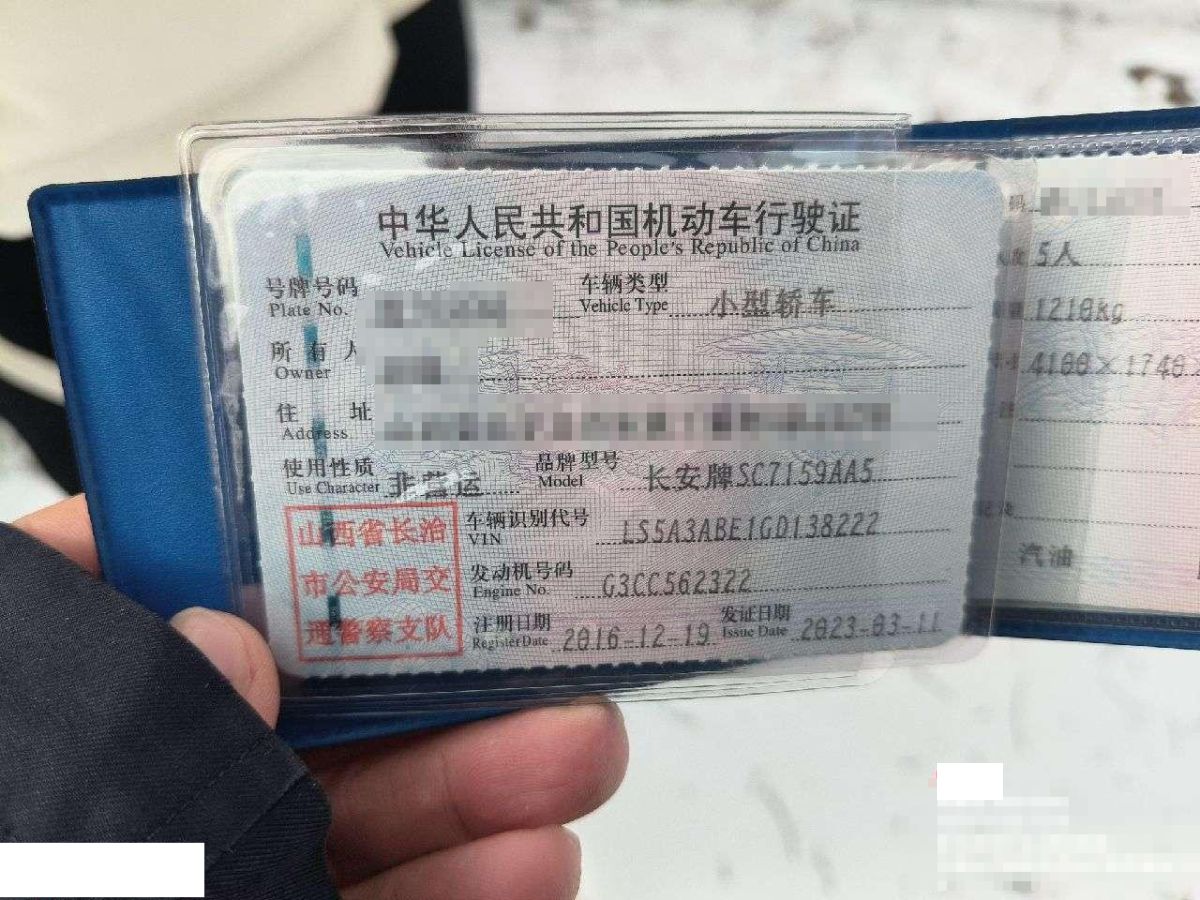 中华人民共和国机动车行驶证
Vehicle License of the People's Republic of China
号牌号码
Plate No.
车辆类型
Vehicle Type
小型轿车
所有人
Owner
住址
Address
使用性质
Use Character
非营运
品牌型号
Model
长安牌SC7159AA5
山西省长治
市公安局交
通警察支队
车辆识别代号
VIN
LS5A3ABE1GD138222
发动机号码
Engine No.
G3CC562322
注册日期
Register Date
2016-12-19
发证日期
Issue Date
2023-03-11
码
5人
1210kg
4100×1740×
汽油